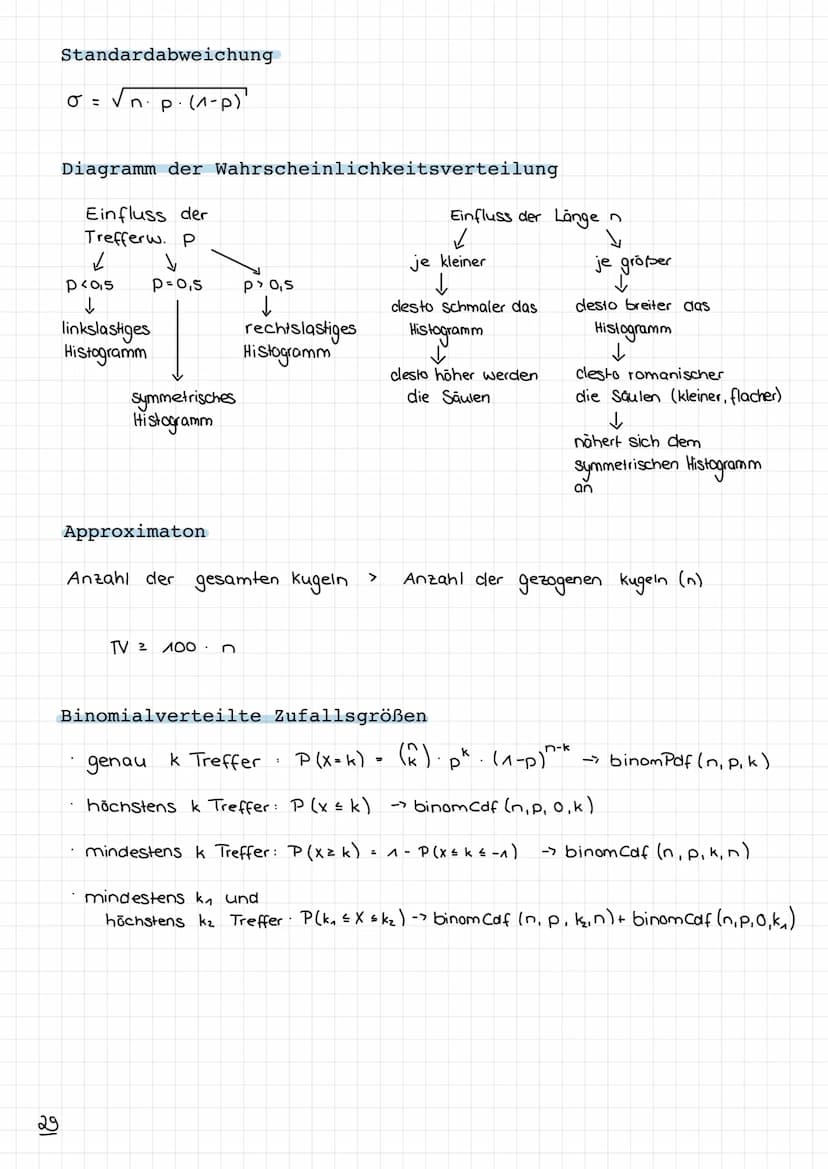 Standardabweichung
σ = √n · p · (1-p)
Diagramm der Wahrscheinlichkeitsverteilung
Einfluss der
Trefferw. p
↙ ↘ ↘
p<0,5 p=0,5 p>0,5
↓ ↓ ↓
linkslastiges
Histogramm
rechtslastiges
Histogramm
symmetrisches
Histogramm
Einfluss der Länge n
↙ ↘
je kleiner
↓
desto schmaler das
Histogramm
↓
desto höher werden
die Säulen
je größer
↓
desto breiter das
Histogramm
↓
desto romanischer
die Säulen (kleiner, flacher)
↓
nähert sich dem
symmetrischen Histogramm
an
Approximaton
Anzahl der gesamten Kugeln > Anzahl der gezogenen Kugeln (n)
≥ 100 · n
Binomialverteilte Zufallsgrößen
· genau k Treffer : P(X=k) = (n k) · p^k · (1-p)^n-k -> binomPdf(n, p, k)
· höchstens k Treffer: P(X ≤ k) -> binomcdf (n, p, 0, k)
· mindestens k Treffer: P(X ≥ k) = 1 - P(X ≤ k ≤ -1) -> binomCdf (n, p, k, n)
· mindestens k₁ und
höchstens k₂ Treffer · P(k₁ ≤ X ≤ k₂) -> binomCdf (n, p, k₂, n) + binomCdf (n, p, 0, k₁)
29